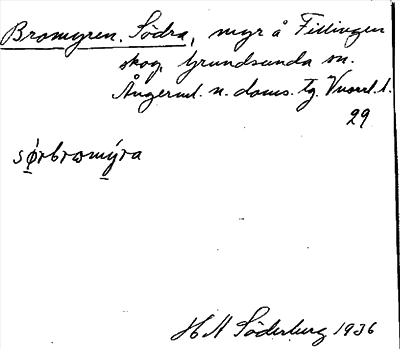 Bromyren. Södra, myr å Fillingen
skog, Grundsunda sn.
Ångerml. n. doms. tg.
29
sǿrbromýra
H N Söderberg 1936